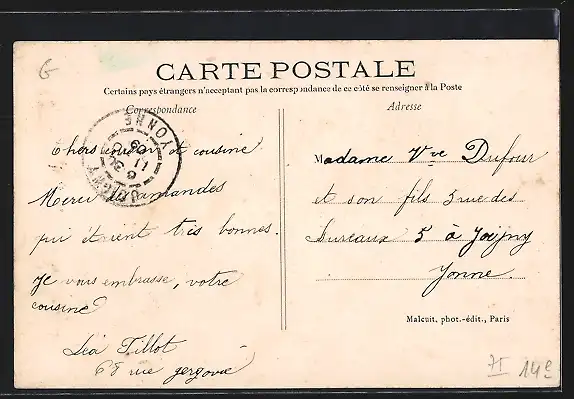 G
CARTE POSTALE
Certains pays étrangers n'acceptant pas la correspondance de ce côté se renseigner à la Poste
Correspondance
Chers cousin et cousine
Merci amandes
qui étaient très bonnes.
Je vous embrasse, votre
cousine
Léa Tillot
68 rue gergovie
YONNE
Adresse
Madame Vve Dufour
et son fils 5 rue des
Bureaux 5 à Joigny
Yonne.
Malcuit, phot.-édit., Paris
14e